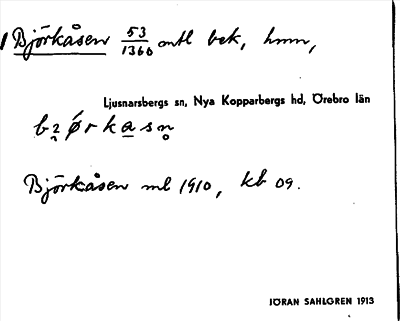 1 Björkåsen 53/1360 mtl bek, hmn,
Ljusnarsbergs sn, Nya Kopparbergs hd, Örebro län
Björkåsen ml 1910, kb 09.
JÖRAN SAHLGREN 1913